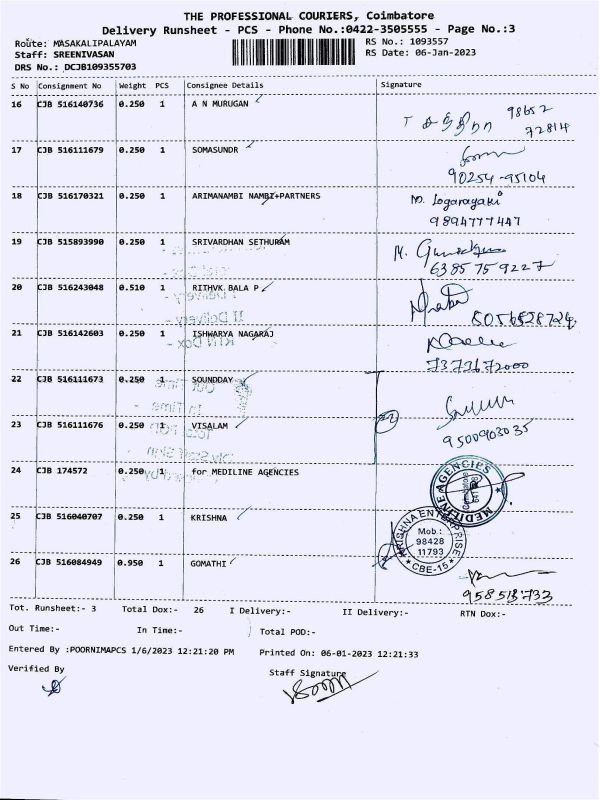 THE PROFESSIONAL COURIERS, Coimbatore
Delivery Runsheet - PCS - Phone No.:0422-3505555 - Page No.:3
Route: MASAKALIPALAYAM
RS No.: 1093557
Staff: SREENIVASAN
RS Date: 06-Jan-2023
DRS No.: DCJB109355703
S No Consignment No Weight PCS Consignee Details Signature
16 CJB 516140736 0.250 1 A N MURUGAN 98652
72814
17 CJB 516111679 0.250 1 SOMASUNDR
90254-95104
18 CJB 516170321 0.250 1 ARIMANAMBI NAMBI+PARTNERS M. Logarayaki
9894777447
19 CJB 515893990 0.250 1 SRIVARDHAN SETHURAM M.
6385759227
20 CJB 516243048 0.510 1 RITHVK BALA P
21 CJB 516142603 0.250 1 ISHWARYA NAGARAJ
7373172000
22 CJB 516111673 0.250 1 SOUNDDAY
23 CJB 516111676 0.250 1 VISALAM
9500903035
24 CJB 174572 0.250 1 for MEDILINE AGENCIES MEDILINE AGENCIES
25 CJB 516040707 0.250 1 KRISHNA KRISHNA ENTERPRISE
Mob.:
98428
11793
CBE-15
26 CJB 516084949 0.950 1 GOMATHI
Tot. Runsheet:- 3 Total Dox:- 26 I Delivery:- II Delivery:- RTN Dox:-
Out Time:- In Time:- Total POD:-
Entered By :POORNIMAPCS 1/6/2023 12:21:20 PM Printed On: 06-01-2023 12:21:33
Verified By Staff Signature